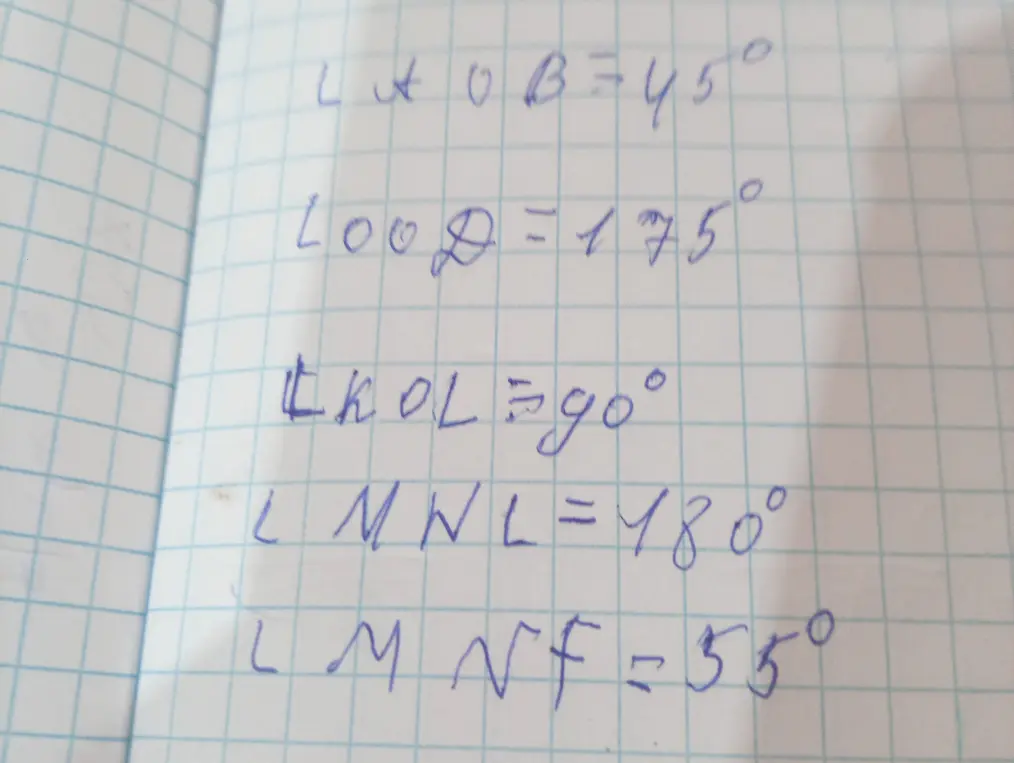 ∠ AOB = 45°
∠OOD = 175°
∠KOL = 90°
∠ MNL = 180°
∠ MNF = 55°